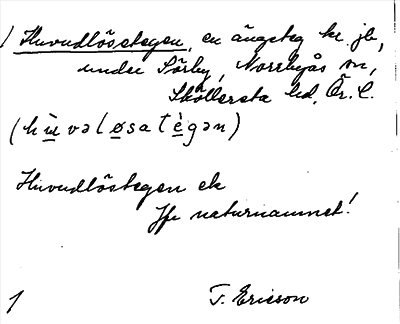 1 Huvudlösategen, en ängsteg kr. jb,
under Sörby, Norrbyås sn,
Sköllersta hd, Ör. l.
(hu̱̇vəlø̱satè̱gən)
Huvudlöstegen ek
Jfr naturnamnet!
1 T. Ericson